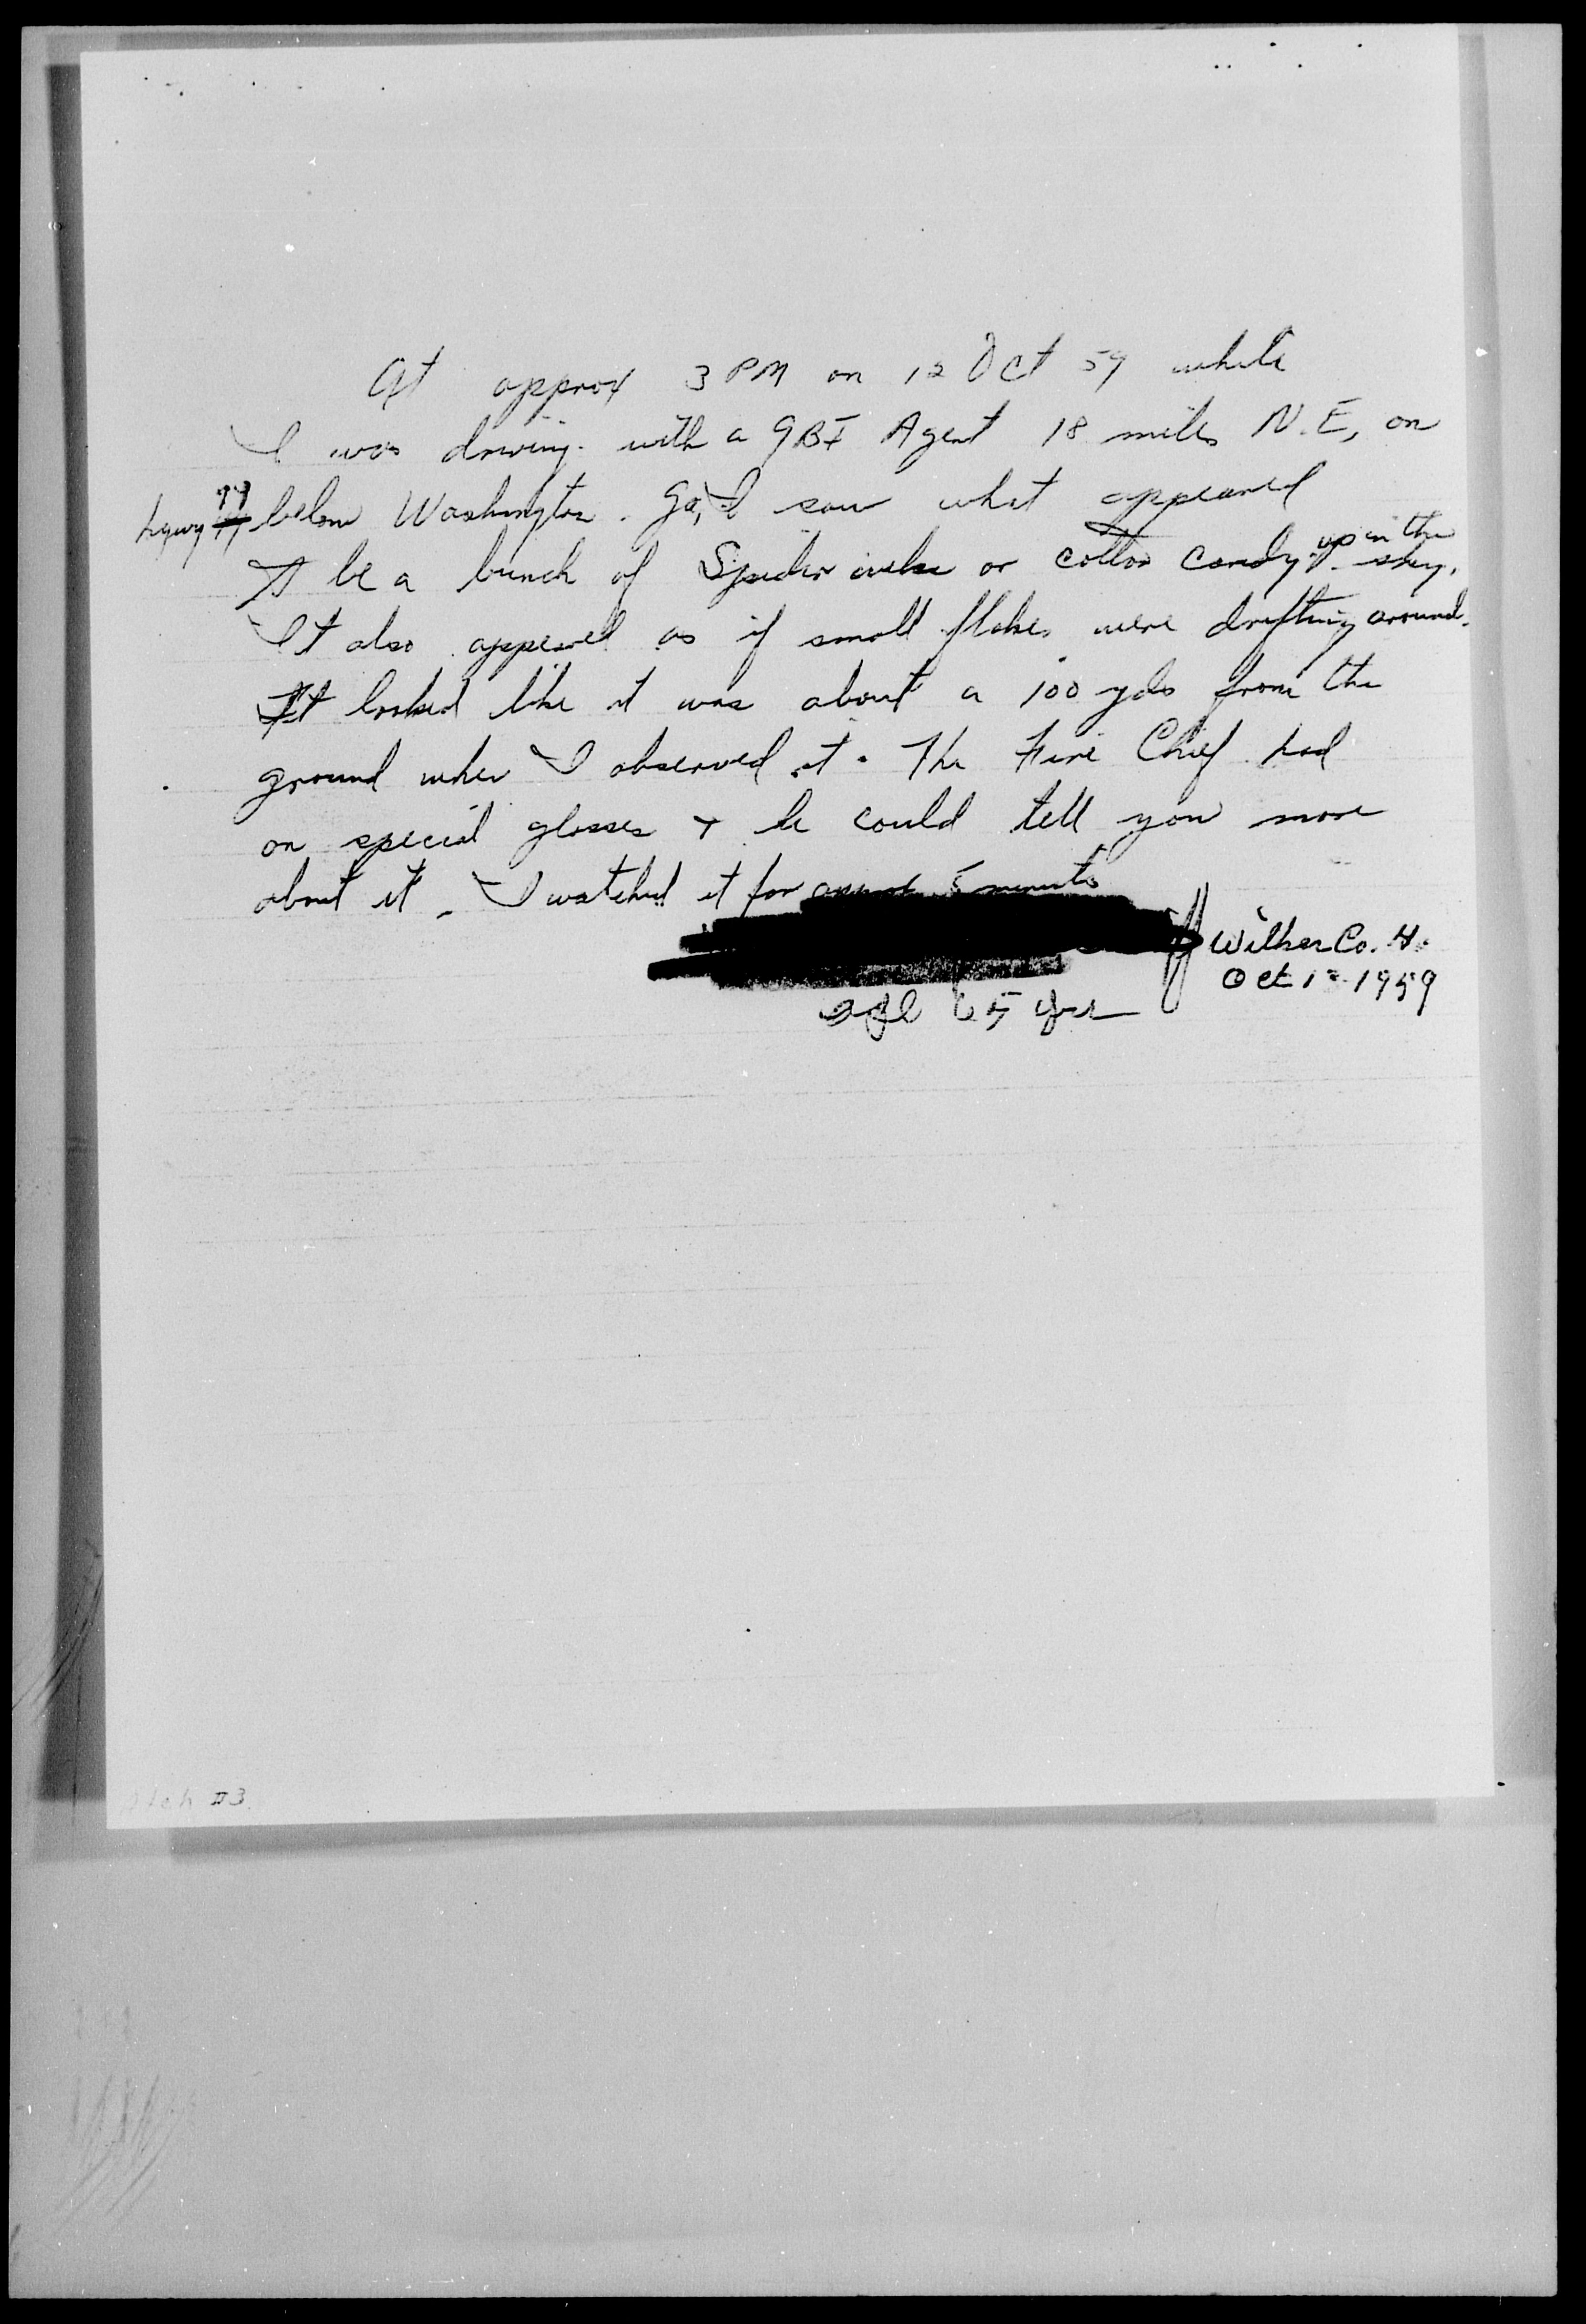 At approx 3 PM on 12 Oct 59 while
I was driving with a GBI Agent 18 miles N.E, on
hgwy below Washington Ga, I saw what appeared
to be a bunch of Spider webs or cotton candy up in the sky.
It also appeared as if small flakes were drifting around.
It looked like it was about a 100 yds from the
ground when I observed it. The Fire Chief had
on special glasses + he could tell you more
about it. I watched it for approx 5 minutes
Wilkes Co.
Oct 12 1959
age 65 yrs
Atch #3